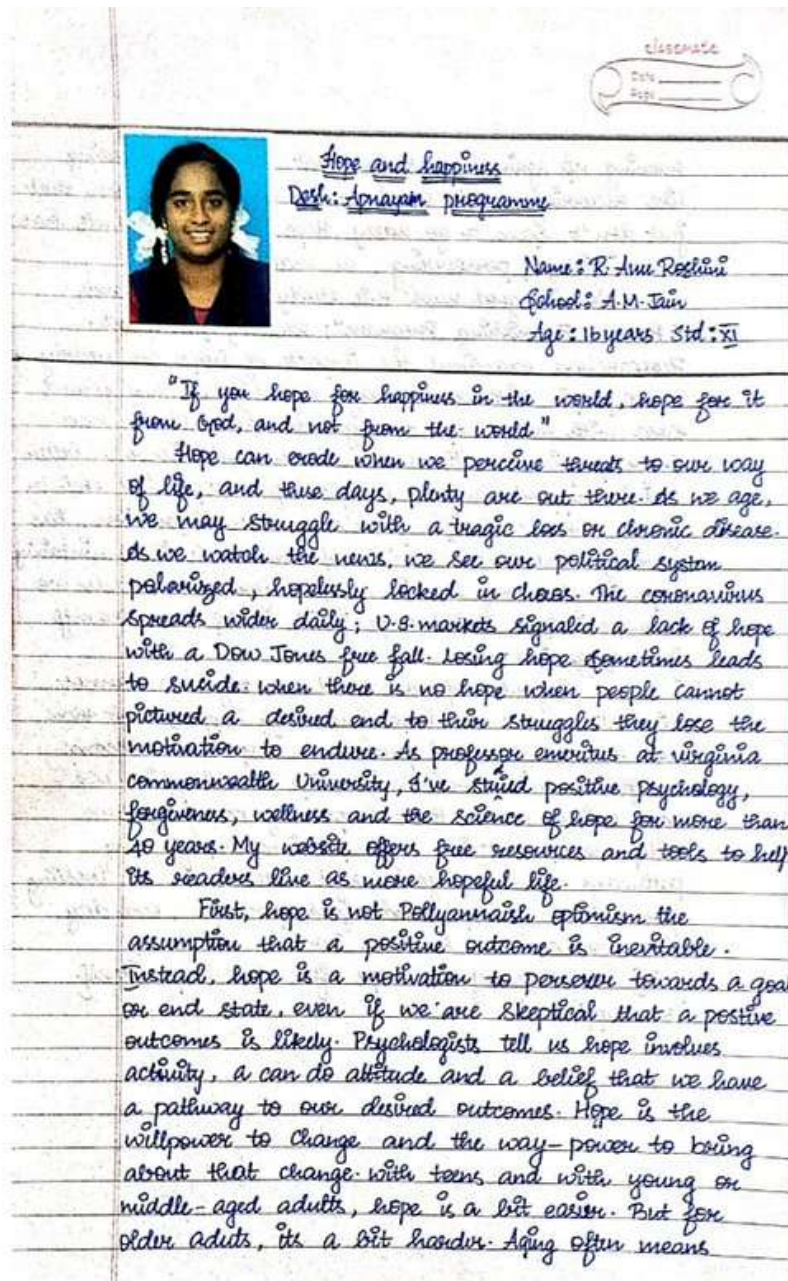 classmate
Date
Page
Hope and happiness
Desh: Apnayam programme
Name: R. Anu Roshini
School: A.M. Jain
Age: 16 years Std: XI
"If you hope for happiness in the world, hope for it
from God, and not from the world"
Hope can erode when we perceive threats to our way
of life, and these days, plenty are out there. As we age,
we may struggle with a tragic loss or chronic disease.
As we watch the news, we see our political system
polarized, hopelessly locked in chaos. The coronavirus
spreads wider daily; U.S. markets signaled a lack of hope
with a Dow Jones free fall. Losing hope sometimes leads
to suicide. when there is no hope when people cannot
pictured a desired end to their struggles they lose the
motivation to endure. As professor emeritus at virginia
commonwealth University, I've positive psychology,
forgiveness, wellness and the science of hope for more than
40 years. My website offers free resources and tools to help
its readers live as more hopeful life.
First, hope is not Pollyannaish optimism the
assumption that a positive outcome is inevitable.
Instead, hope is a motivation to persever towards a goal
or end state, even if we are skeptical that a postive
outcomes is likely. Psychologists tell us hope involves
activity, a can do attitude and a belief that we have
a pathway to our desired outcomes. Hope is the
willpower to change and the way-power to bring
about that change. with teens and with young or
middle-aged adults, hope is a bit easier. But for
older aduts, its a bit harder. Aging often means